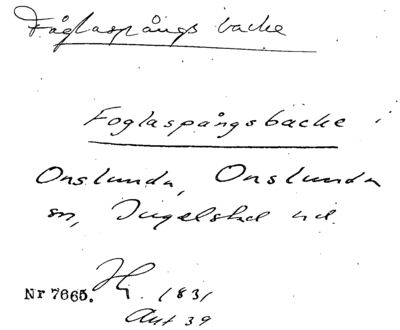 Fåglaspångs backe
Foglaspångsbäcke i
Onslunda, Onslunda
sn, Ingelstad hd.
Nr 7665. Hj. 1831
Akt 39